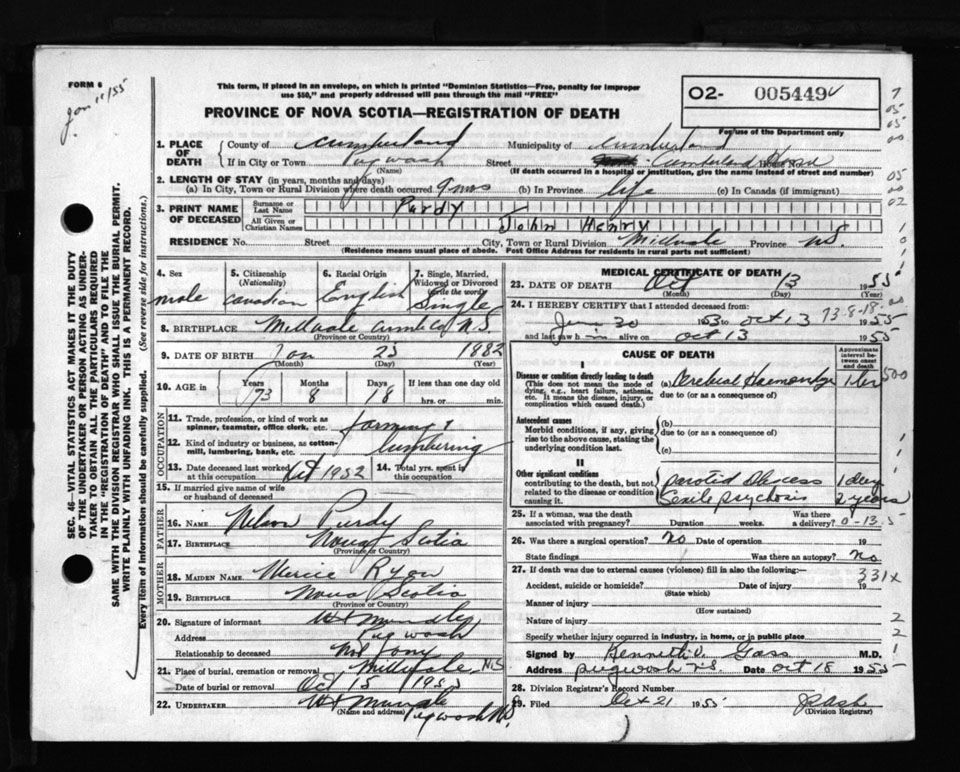 FORM 6
Jan 11/55
This form, if placed in an envelope, on which is printed "Dominion Statistics—Free, penalty for improper
use $50," and properly addressed will pass through the mail "FREE"
PROVINCE OF NOVA SCOTIA—REGISTRATION OF DEATH
O2- 005449
For use of the Department only
1. PLACE OF DEATH
County of Cumberland Municipality of Cumberland
If in City or Town Pugwash Street Cumberland Home
(Name) (If death occurred in a hospital or institution, give the name instead of street and number)
2. LENGTH OF STAY (in years, months and days)
(a) In City, Town or Rural Division where death occurred 9 mos (b) In Province life (c) In Canada (if immigrant)
3. PRINT NAME OF DECEASED
Surname or Last Name Purdy
All Given or Christian Names John Henry
RESIDENCE No. Street City, Town or Rural Division Millvale Province N.S.
(Residence means usual place of abode. Post Office Address for residents in rural parts not sufficient)
4. Sex male
5. Citizenship (Nationality) Canadian
6. Racial Origin English
7. Single, Married, Widowed or Divorced (write the word) Single
8. BIRTHPLACE Millvale Cumb Co N.S.
(Province or Country)
9. DATE OF BIRTH Jan 25 1882
(Month) (Day) (Year)
10. AGE in Years 73 Months 8 Days 18 If less than one day old
hrs. or min.
OCCUPATION
11. Trade, profession, or kind of work as spinner, teamster, office clerk, etc. farming &
12. Kind of industry or business, as cotton-mill, lumbering, bank, etc. lumbering
13. Date deceased last worked at this occupation 1952 14. Total yrs. spent in this occupation
15. If married give name of wife or husband of deceased
FATHER
16. NAME Nelson Purdy
17. BIRTHPLACE Nova Scotia
(Province or Country)
MOTHER
18. MAIDEN NAME Ryan
19. BIRTHPLACE Nova Scotia
(Province or Country)
20. Signature of informant
Address Pugwash
Relationship to deceased
21. Place of burial, cremation or removal Millvale, N.S
Date of burial or removal Oct 15 1955
22. UNDERTAKER Pugwash N.S.
(Name and address)
MEDICAL CERTIFICATE OF DEATH
23. DATE OF DEATH Oct 13 1955
(Month) (Day) (Year)
24. I HEREBY CERTIFY that I attended deceased from:
30 1953 to Oct 13 1955
73-8-18
and last saw him alive on Oct 13 1955
CAUSE OF DEATH
Approximate interval between onset and death
I
Disease or condition directly leading to death
(This does not mean the mode of dying, e.g., heart failure, asthenia, etc. It means the disease, injury, or complication which caused death.)
(a) Cerebral Haemorrhage
due to (or as a consequence of)
Antecedent causes
Morbid conditions, if any, giving rise to the above cause, stating the underlying condition last.
(b)
due to (or as a consequence of)
(c)
II
Other significant conditions
contributing to the death, but not related to the disease or condition causing it.
parotid Abscess 1 day
Senile psychosis 2 years
25. If a woman, was the death associated with pregnancy? Duration weeks. Was there a delivery?
0-13-5
26. Was there a surgical operation? No Date of operation 19
State findings Was there an autopsy? No
27. If death was due to external causes (violence) fill in also the following:—
331x
Accident, suicide or homicide? Date of injury 19
(State which)
Manner of injury
(How sustained)
Nature of injury
Specify whether injury occurred in industry, in home, or in public place
Signed by Kenneth V. Gass M.D.
Address Pugwash N.S. Date Oct 18 1955
28. Division Registrar's Record Number
29. Filed Oct 21 1955
(Division Registrar)
SEC. 46—VITAL STATISTICS ACT MAKES IT THE DUTY
OF THE UNDERTAKER OR PERSON ACTING AS UNDER-
TAKER TO OBTAIN ALL THE PARTICULARS REQUIRED
IN THE "REGISTRATION OF DEATH" AND TO FILE THE
SAME WITH THE DIVISION REGISTRAR WHO SHALL ISSUE THE BURIAL PERMIT.
WRITE PLAINLY WITH UNFADING INK. THIS IS A PERMANENT RECORD.
Every item of information should be carefully supplied. (See reverse side for instructions.)